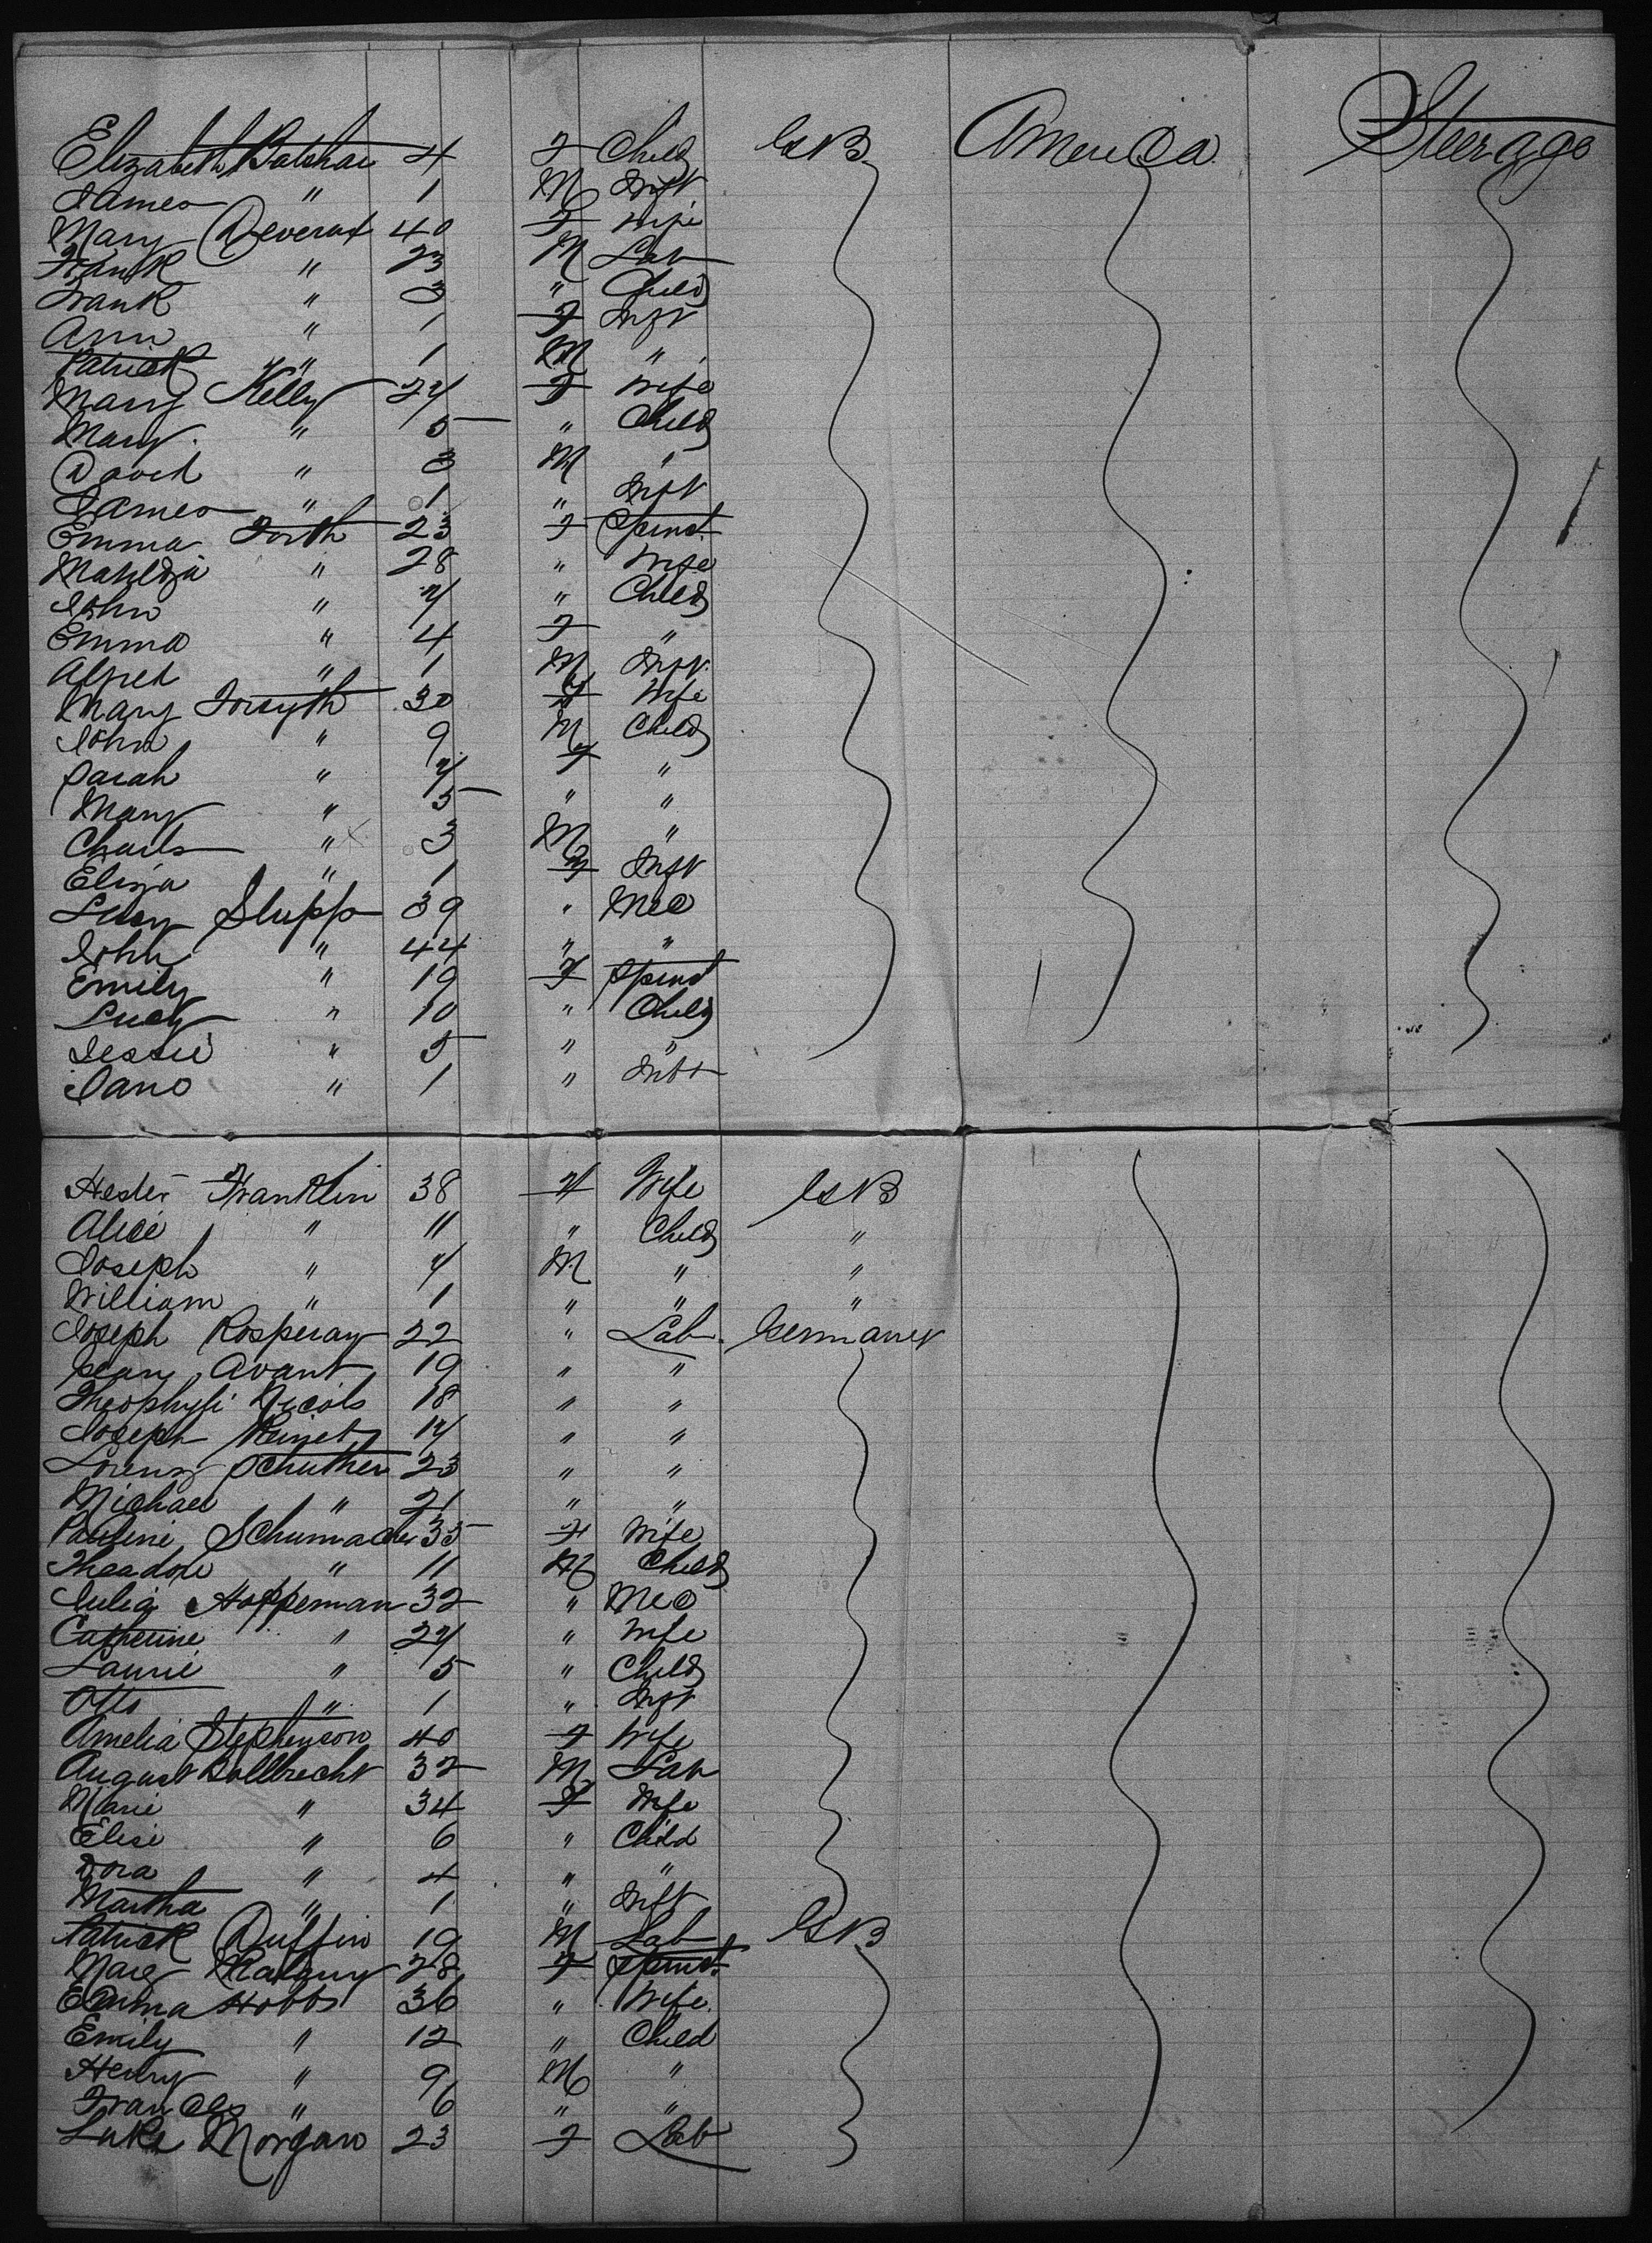 Elizabeth 4 F Child GB America Steerage
James " 1 M Inft
Mary Deveraux 40 F Wife
Frank " 23 M Lab
Frank " 3 " Child
Ann " 1 F Inft
Patrick " 1 M "
Mary Kelly 24 F Wife
Mary " 5 " Child
David " 3 M "
James " 1 " Inft
Emma Forth 23 F Spinst.
Matilda " 28 " Wife
John " 7 " Child
Emma " 4 F "
Alfred " 1 M Inft
Mary Forsyth 30 F Wife
John " 9 M Child
Sarah " 7 F "
Mary " 5 " "
Charls " 3 M "
Eliza " 1 F Inft
Lucy 39 " Mec
John " 44 " "
Emily " 19 F Spinst
Lucy " 10 " Child
Jessie " 5 " "
Jane " 1 " Inft
Hester Franklin 38 F Wife GB
Alice " 11 " Child "
Joseph " 7 M " "
William " 1 " " "
Joseph 22 " Lab Germany
Avant 19 " "
Nicols 18 " "
Joseph " "
Lorenz 23 " "
Michael " 21 " "
Pauline Schumacher 35 F Wife
Theadore " 11 M Child
Julia Hoffeman 32 " Mec
Catherine " 24 " Wife
Laurie " 5 " Child
Otto " 1 " Inft
Amelia Stephenson 40 F Wife
August Vollbrecht 32 M Lab
Marie " 34 F Wife
Elise " 6 " Child
Dora " 4 " "
Martha " 1 " Inft
Patrick Duffin 19 M Lab GB
Mary 28 F Spinst.
Emma Hobbs 36 " Wife
Emily " 12 " Child
Henry " 9 M "
Frances " 6 " "
Luke Morgan 23 F Lab